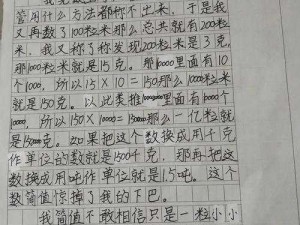 管用什么方法都称不出来，于是我
又再数了100粒米那么总共就有200粒
米，我又称了称发现200粒米是3克。
那1000粒米就是15克。那10000里面有10
个1000，所以15×10=150那么一10000粒米
就是150克。以此类推1000000里面有100个
10000，所以150×1000=150000那么一亿粒就
是150000克。如果把这个数换成用千克
作单位的数就是1500千克，那再把这
数换成用吨作单位就是1.5吨。这个
数简值惊掉了我的下巴。
我简值不敢相信只是一粒小小